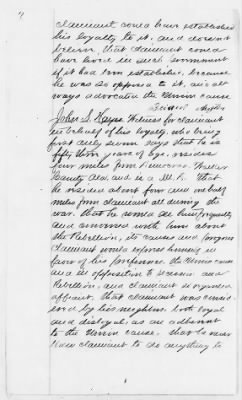 claimant could have established
his loyalty to it, and doesnt
believe, that claimant could
have lived in such government
if it had been established, because
he was so opposed to it, and al
ways advocated the Union cause
John S. Witness for claimant
in behalf of his loyalty, who being
first duly sworn says that he is
fifty three years of age, resides
four miles from
County Ala, and is a M.D. That
he resided about four and one half
miles from claimant all during the
war. That he would see him frequently
and converse with him about
the Rebellion, its causes and progress
claimant would express himself in
favor of his preference the Union cause
and in opposition to secession and
Rebellion, and claimant
affiant, that claimant was consid
ered by his neighbors both loyal
and disloyal, as an adherent
to the Union cause. that he never
knew claimant to do anything to